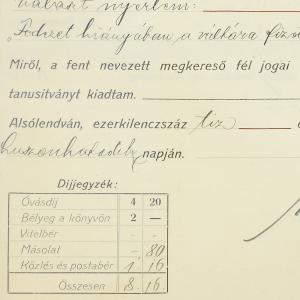 választ nyertem:
„Fedezet hiányában a váltóra fizu
Miről, a fent nevezett megkereső fél jogai
tanusitványt kiadtam.
Alsólendván, ezerkilenczszáz tiz
huszonhatodik napján.
Dijjegyzék:
Óvásdij 4 20
Bélyeg a könyvön 2 —
Vitelbér — —
Másolat — 80
Közlés és postabér 1 16
Összesen 8 16